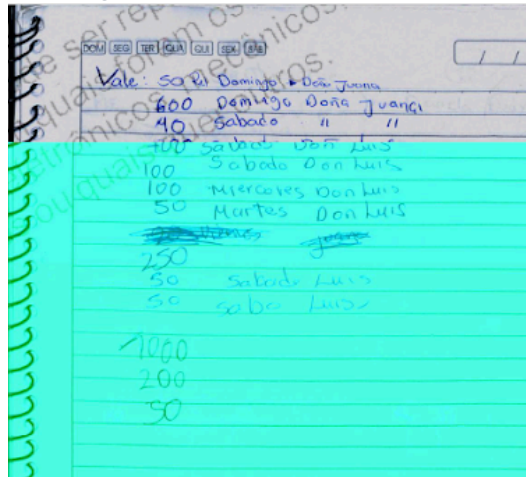 DOM SEG TER QUA QUI SEX SÁB
Vale: 50 Domingo Doña Juana
600 Domingo Doña Juana
40 Sabado " "
100 Sabado Don Luis
100 Sabado Don Luis
100 Miercoles Don Luis
50 Martes Don Luis
250
50 Sabado Luis
50 Sabo Luis
1000
200
50